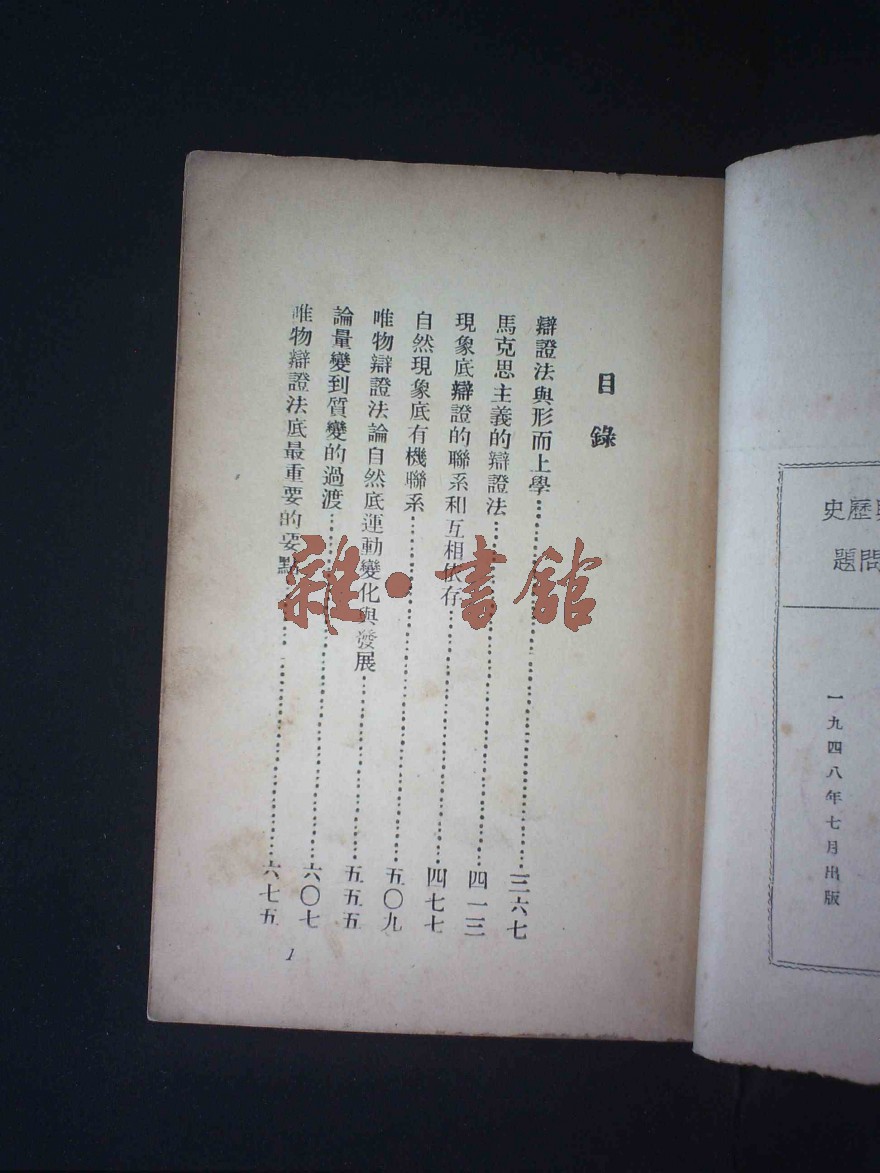 歷史
問題
一九四八年七月出版
目錄
辯證法與形而上學……三六七
馬克思主義的辯證法……四一三
現象底辯證的聯系和互相依存……四七七
自然現象底有機聯系……五〇九
唯物辯證法論自然底運動變化與發展……五五五
論量變到質變的過渡……六〇七
唯物辯證法底最重要的要點……六七五
1
雜·書館